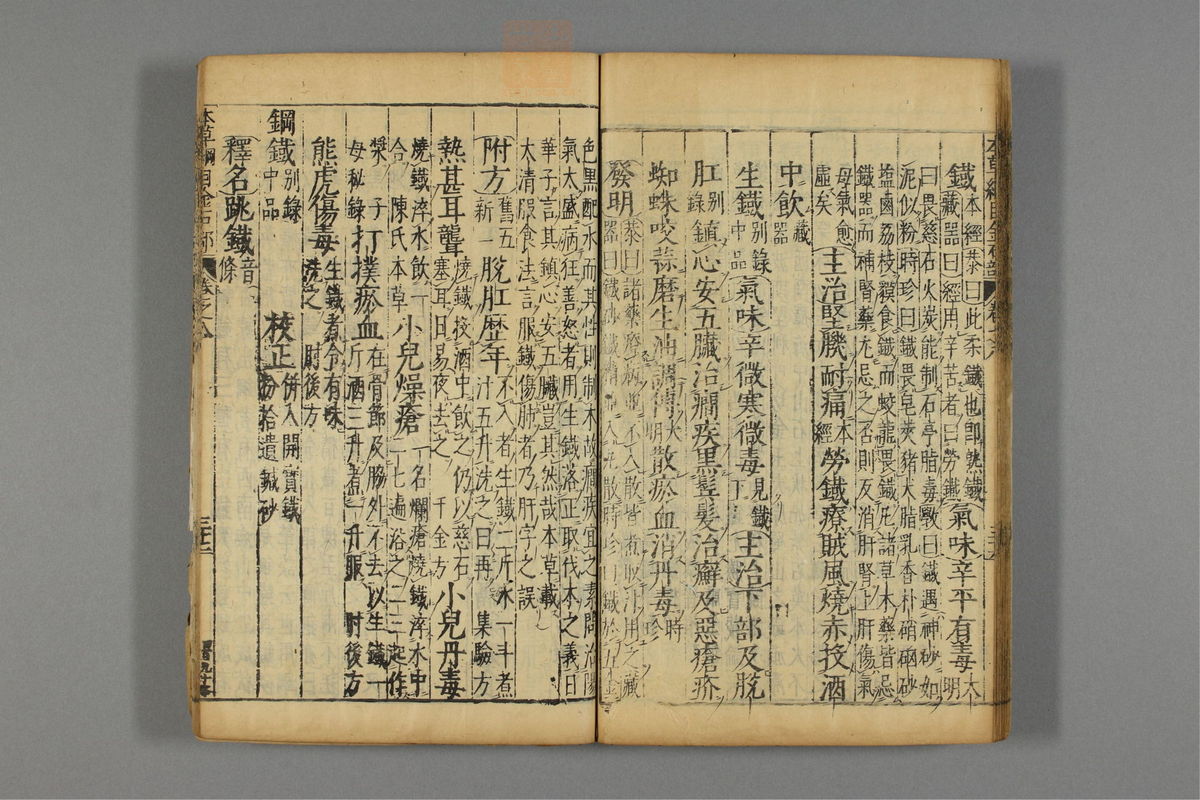 鐵本經恭曰此柔鐵也即熟鐵
藏器曰經用辛苦者曰勞鐵氣味辛平有毒大明
曰畏慈石火炭能制石亭脂毒斅曰鐵遇神砂如
泥似粉時珍曰鐵畏皂莢猪犬脂乳香朴硝硇砂
塩鹵荔枝貘食鐵而蛟龍畏鐵凡諸草木藥皆忌
鐵器而補腎藥尤忌之否則反消肝腎上肝傷氣
母氣愈虛矣主治堅肌耐痛本經勞鐵療賊風燒赤投酒
中飲藏器
生鐵別錄中品氣味辛微寒微毒見鐵下主治下部及脫
肛別錄鎮心安五臟治癇疾黑鬢髮治癬及惡瘡疥
蜘蛛咬蒜磨生油調傅大明散瘀血消丹毒時珍
發明恭曰諸藥療病並不入散皆煮取汁用之藏
器曰鐵砂鐵精並入丸散時珍曰鐵於五金
色黑配水而其性則制木故癇疾宜之素問治陽
氣太盛病狂善怒者用生鐵洛正取伐木之義日
華子言其鎮心安五臟豈其然哉本草載
太清服食法言服鐵傷肺者乃肝字之誤
附方舊五新一脫肛歷年不入者生鐵二斤水一斗煮汁五升洗之日再集驗方
熱甚耳聾燒鐵投酒中飲之仍以慈石塞耳日易夜去之千金方小兒丹毒
燒鐵淬水飲一合陳氏本草小兒燥瘡一名爛瘡燒鐵淬水中二七遍浴之二三起作
漿子母秘錄打撲瘀血在骨節及脇外不去以生鐵一斤酒三升煮一升服肘後方
熊虎傷毒生鐵煮令有味洗之肘後方
鋼鐵別錄中品
釋名跳鐵音條校正併入開寶鐵粉拾遺鍼砂